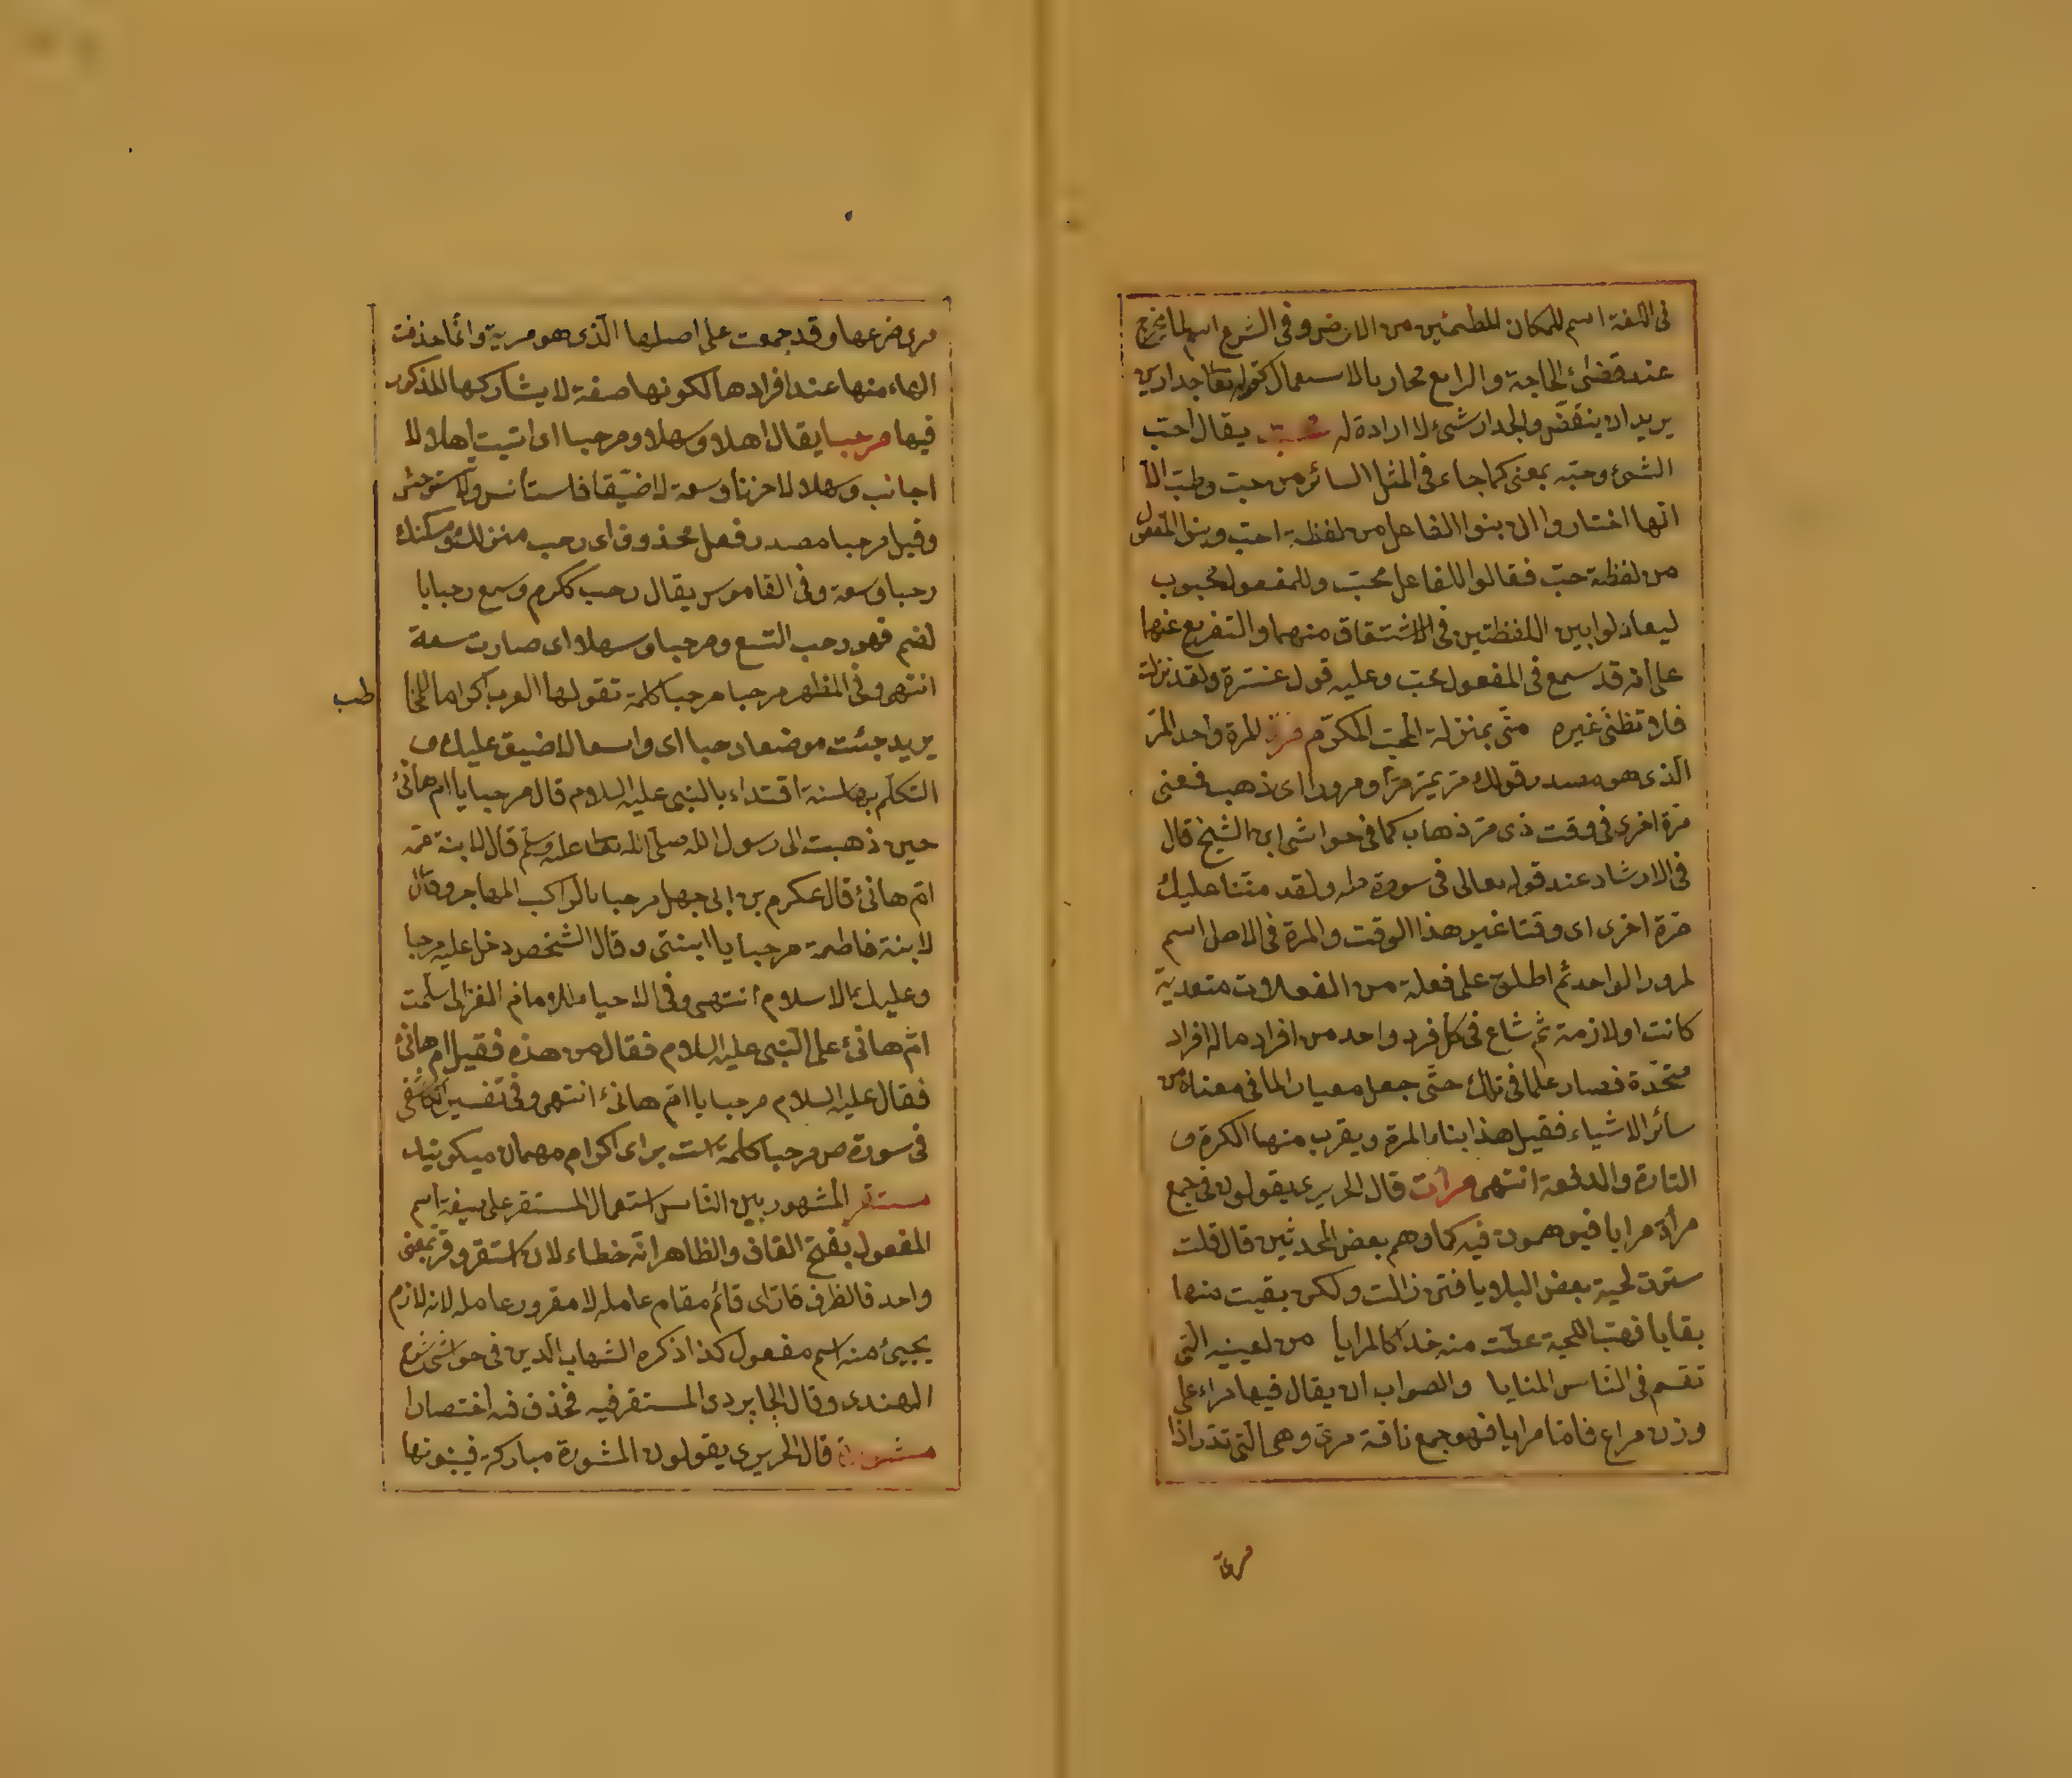 فى اللغة اسم للمكان المطمئن من الارض وفى الشرع اسم لما يخرج
عند قضئ الحاجة والرابع مجاز بالاستعمال كقوله تعا جدارين
يريد ان ينقض والجدار شئ لا ارادة له محبت يقال احبّ
الشئ وحبّه بمعنى كما جاء فى المثل السائر من حبت وطبّ الا
انها اختاروا ان بنوا الفاعل من لفظة احب وبنوا المفعول
من لفظة حبّ فقالوا للفاعل محبّ وللمفعول محبوب
ليعادلوا بين اللفظتين فى الاشتقاق منهما والتفريع عنهما
على انه قد سمع فى المفعول محب وعليه قول عنترة ولقد نزلت
فلا تظنى غيره منّى بمنزلة المحب المكرّم مرة المرة واحد المرّ
الذى هو مصدر قولك مرّ يمرّ مرّا ومرورا اى ذهب فمعنى
مرة اخرى فى وقت ذى مرّ ذهاب كما فى حواشى ابن الشيخ قال
فى الارشاد عند قوله تعالى فى سورة طه ولقد مننّا عليك
مرة اخرى اى وقتا غير هذا الوقت والمرة فى الاصل اسم
لمرور الواحد ثم اطلق على فعلة من الفعلات متعدية
كانت او لازمة ثم شاع فى كل فرد واحد من افراد ماله افراد
متحدّة فصار علما فى ذلك حتّى جعل معيارا لما فى معناه من
سائر الاشياء فقيل هذا بناء المرة ويقرب منها الكرة و
التارة والدفعة انتهى مرات قال الحريرى يقولون فى جمع
مرأة مرايا فيوهمون فيه كما وهم بعض المحدثين قال قلت
سترت لحية بعض البلايا فتن زالت ولكن بقيت منها
بقايا فهب اللحية غطّت منه خدا كالمرايا من لعينيه التى
تقسم فى الناس المنايا والصواب ان يقال فيها مراء على
وزن مراع فامّا مرايا فهو جمع ناقة مرىّ وهى التى تدر اذا
مرى ضرعها وقد جمعت على اصلها الّذى هو مرية وانّما حذفت
الهاء منها عند افرادها لكونها صفة لا يشاركها المذكور
فيها مرحبا يقال اهلا وسهلا ومرحبا اى اتيت اهلا لا
اجانب وسهلا لا حزنا وسعة لا ضيّقا فاستأنس ولا تستوحش
وقيل مرحبا مصدر فعل محذوف اى رحب منزلك ومسكنك
رحبا وسعة وفى القاموس يقال رحب ككرم وسمع رحبا با
لضم فهو رحب اتسع ومرحبا وسهلا اى صارت سعة
انتهى وفى المظهر مرحبا مرحبا كلمة تقولها العرب اكراما للخا
طب
يريد جئت موضعا رحبا اى واسعا لا ضيق عليك و
التكلّم بها سنة اقتداء بالنبى عليه السلام قال مرحبا يا ام هانئ
حين ذهبت الى رسول الله صلّى الله تعا عليه وسلّم قال لابنة عمّه
امّ هانئ قال عكرم بن ابى جهل مرحبا بالراكب المهاجر وقال
لابنة فاطمة مرحبا يا ابنتى وقال الشخص دخل عليه مرحبا
وعليك بالاسلام انتهى وفى الاحياء للامام الغزالى سلّمت
امّ هانئ على النّبى عليه السلام فقال من هذه فقيل ام هانئ
فقال عليه السلام مرحبا يا امّ هانئ انتهى وفى تفسير الكاشفى
فى سورة ص مرحبا كلمه است براى اكرام مهمان ميكويند
مستقر المشهور بين الناس استعمال المستقر على صيغة اسم
المفعول بفتح القاف والظاهر انّه خطاء لان استقر وقرّ بمعنى
واحد فالظرف قارّ اى قائم مقام عامله لا مقرور عامله لانه لازم
يجيئ منه اسم مفعول كذا ذكره الشهاب الدين فى حواشى شرح
الهندى وقال الجاربردى المستقر فيه فحذف فيه اختصارا
مشورة قال الحريرى يقولون المشورة مباركة فيبنونها